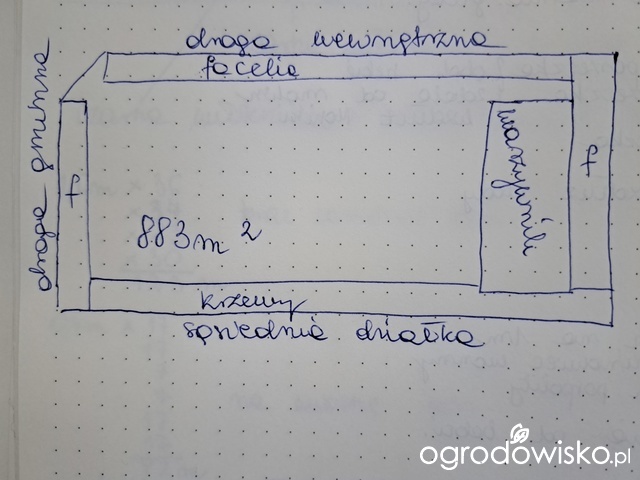 droga wewnętrzna
facelia
droga gminna
f
warzywnik
f
883m²
krzewy
sąsiednia działka
ogrodowisko.pl